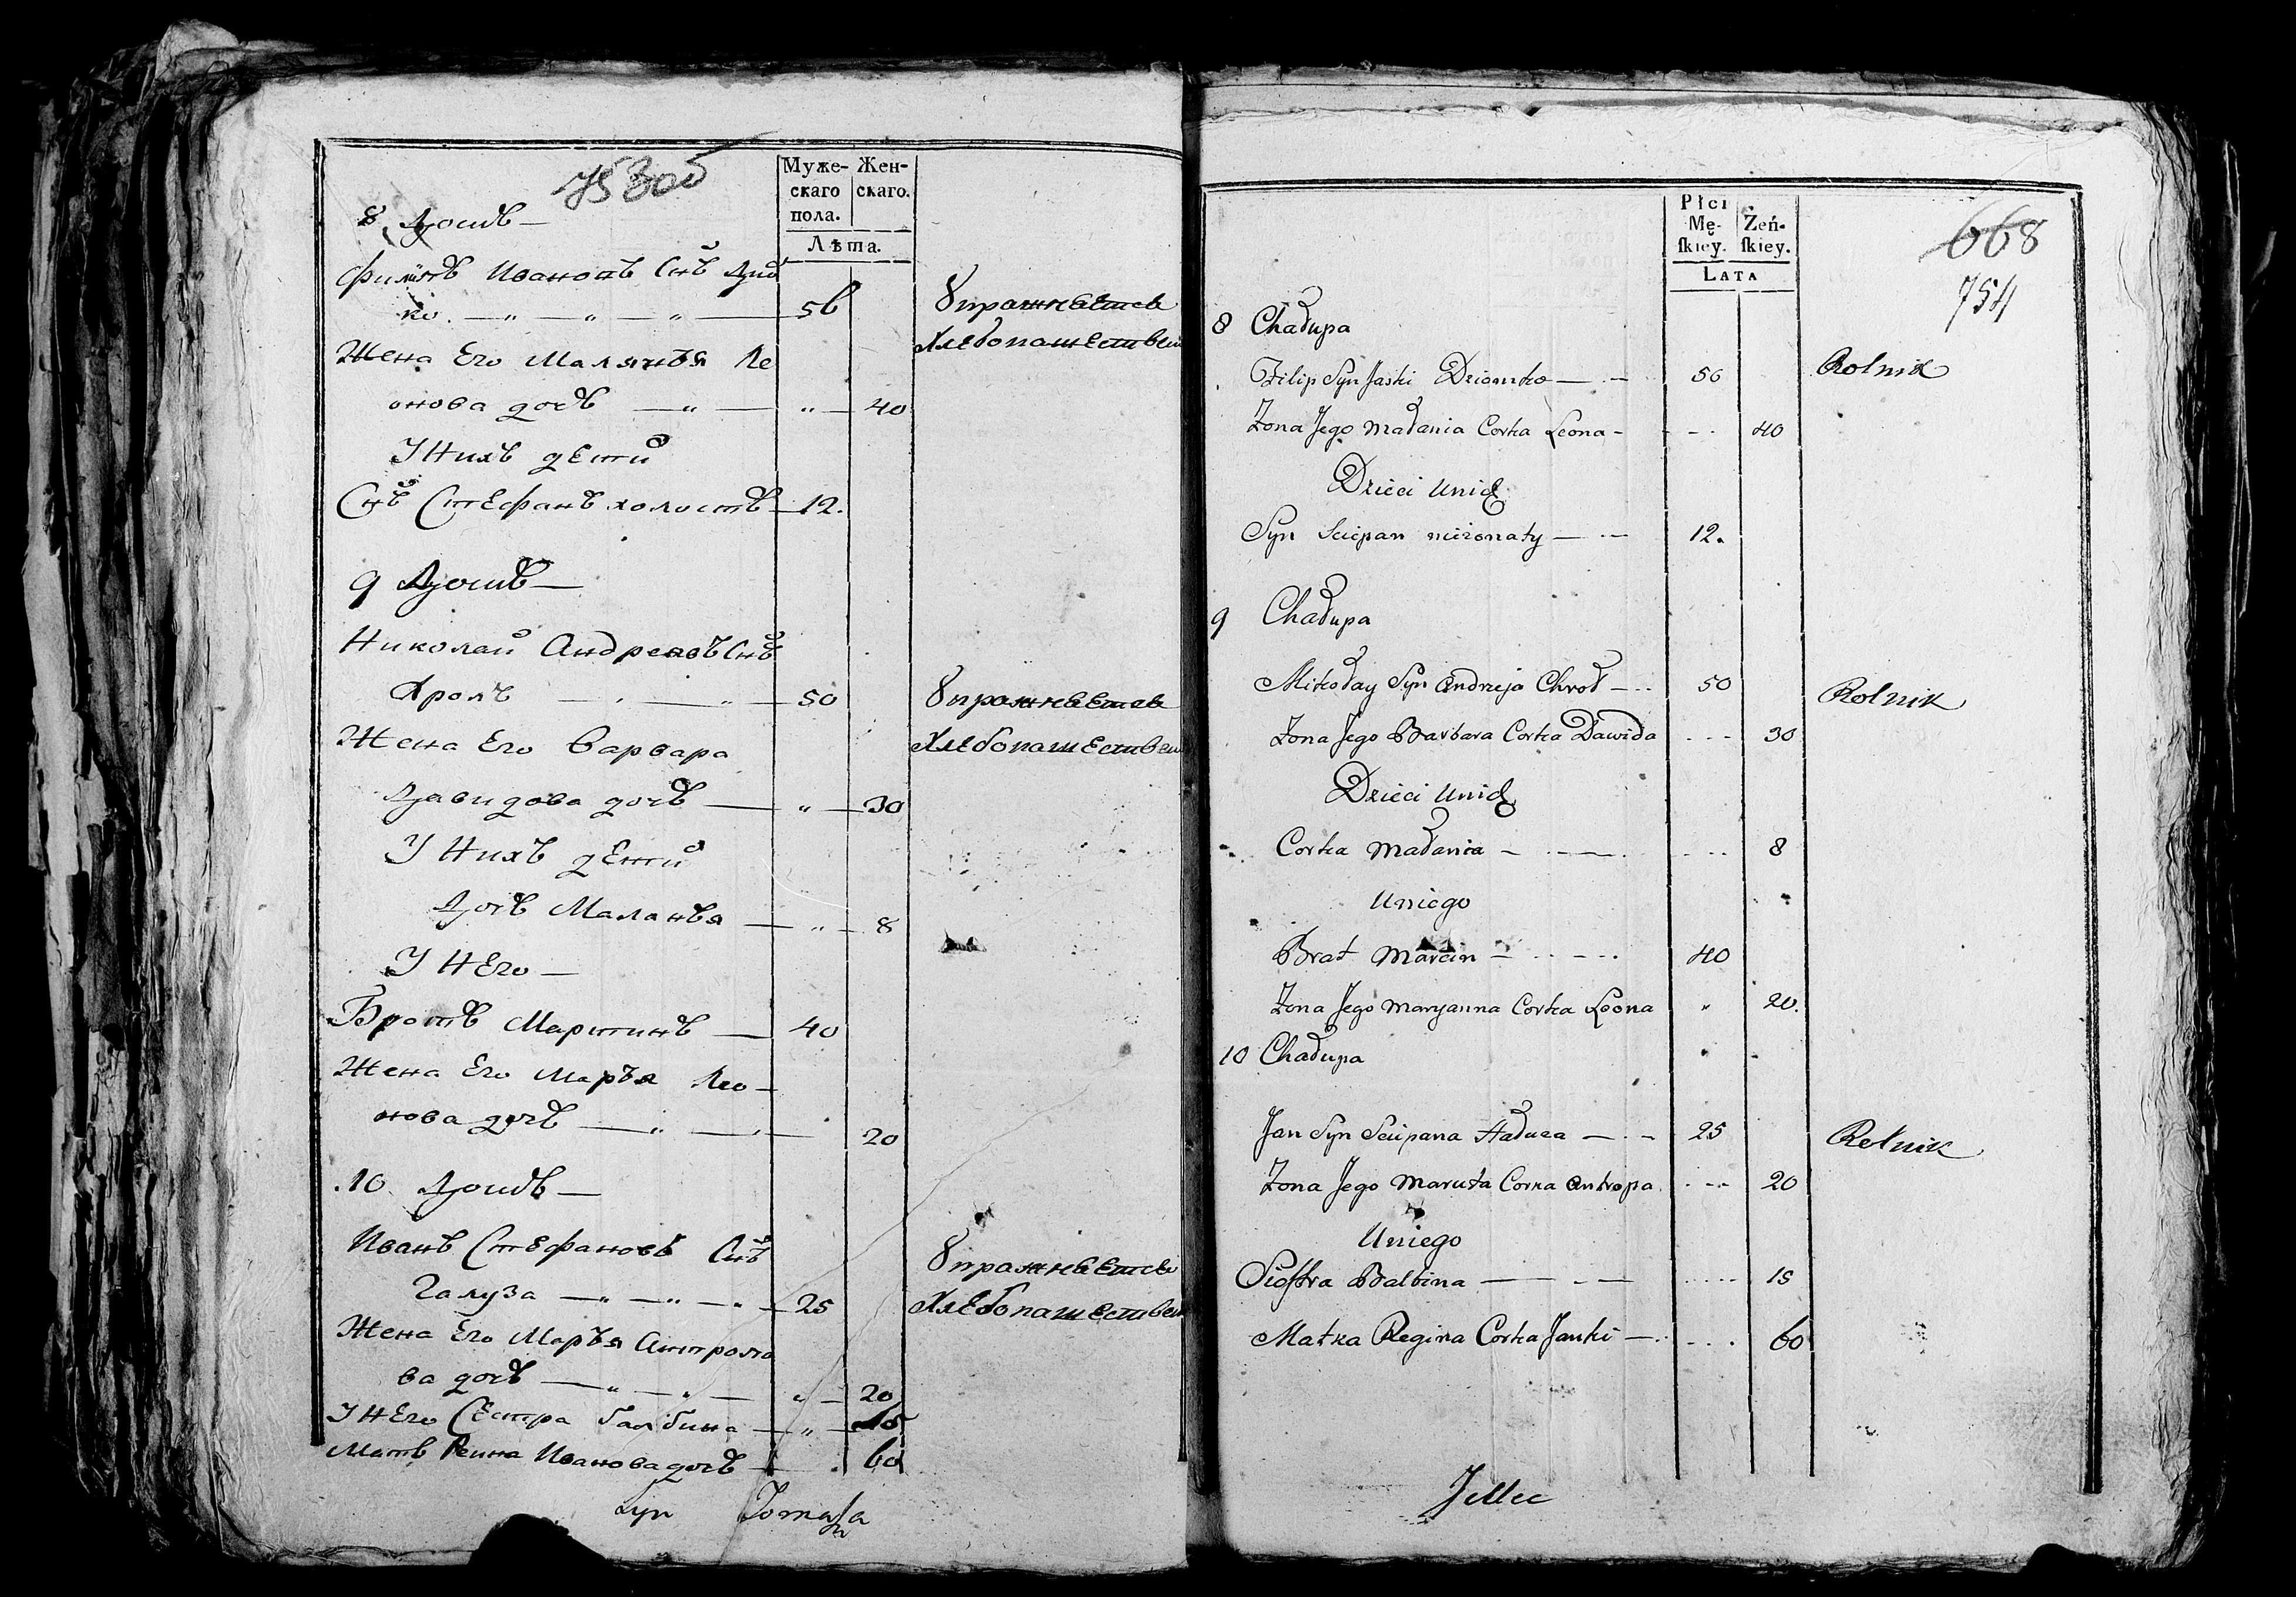 753 об
Муже-
скаго
пола.
Жен-
скаго.
Лѣта.
8 Домъ —
Филипъ Ивановъ Снъ Дзіом
ко. — " — " — " — 56
Упражняется
Хлебопашествем
Жена Его Маланья Ле
онова дочь — " — " — 40
У Нихъ дети
Снъ Стефанъ холостъ — 12.
9 Домъ —
Николай Андреевъ Снъ
Хролъ — " — 50
Упражняется
Хлебопашествем
Жена Его Варвара
Давидова дочь — " — 30
У Нихъ дети
Дочь Маланья — " — 8
У Него —
Братъ Мартинъ — 40
Жена Его Марья Лео-
нова дочь — " — 20
10 Домъ —
Иванъ Стефановъ Снъ
Галуза — " — " — " — 25
Упражняется
Хлебопашествем
Жена Его Марья Антропо
ва дочь — " — " — " — 20
У Него Сестра Балбина — " — 15
Мать Регина Иванова дочь — 60
Syn Tomasza
Płci
Mę-
ſkiey.
Żeń-
ſkiey.
LATA
668
754
8 Chałupa
Filip Syn Jaśki Dziomko — 56
Rolnik
Żona Jego Małania Corka Leona - 40
Dzieci Unich
Syn Sciepan nieżonaty — 12.
9 Chałupa
Mikołay Syn Andrzeja Chroł — 50
Rolnik
Żona Jego Barbara Corka Dawida 30
Dzieci Unich
Corka Małania — 8
Uniego
Brat Marcin — 40
Żona Jego Maryanna Corka Leona " 20.
10 Chałupa
Jan Syn Sciepana Hałuza — 25
Rolnik
Żona Jego Maruta Corka Antropa 20
Uniego
Siostra Balbina — 15
Matka Regina Corka Janki — 60